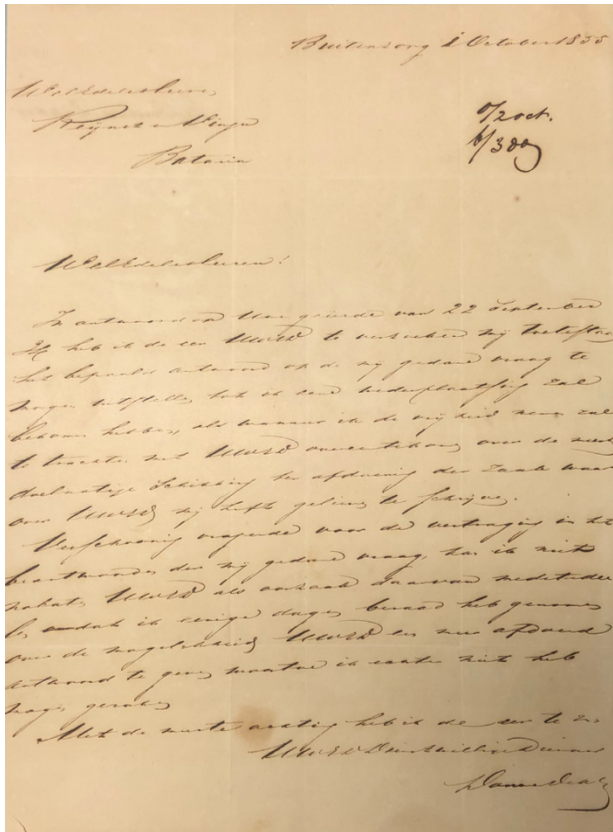 Buitenzorg 1 October 1855
WelEdeleHeeren
Reynst en Vinju
Batavia
o/2 oct.
b/3 do
WelEdeleHeeren!
In antwoord op Uwe geëerde van 22 September
heb ik de eer UWEd te verzoeken mij toe te staan
het bepaald antwoord op de mij gedane vraag te
mogen uitstellen tot ik eene nederplaatsing zal
bekomen hebben, als wanneer ik de vrijheid neem zal
te trachten met UWEd overeentekomen over de meest
doelmatige schikking ter afdoening der zaak waar
over UWEd mij heeft gelieven te schrijven.
Verschooning vragende voor de vertraging in het
beantwoorden der mij gedane vraag, kan ik niet
nalaten UWEd als oorzaak daarvan medetedee
len, omdat ik eenige dagen beraad heb genomen
over de mogelijkheid UWEd een meer afdoend
antwoord te geven waartoe ik echter niet heb
mogen geraken
Met de meeste achting heb ik de eer te zijn
UWEd Dienstwillige Dienaar